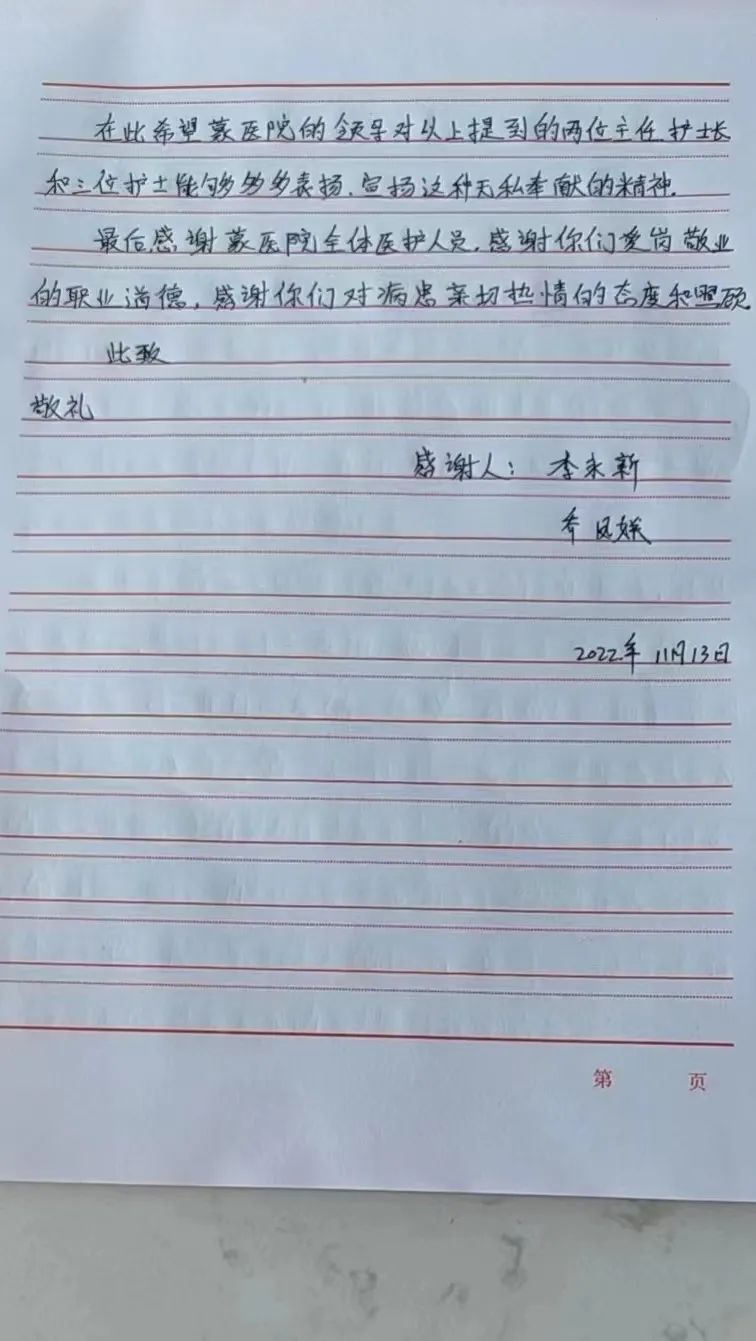 在此希望蒙医院的领导对以上提到的两位主任护士长
和三位护士能够多多多表扬、宣扬这种无私奉献的精神.
最后感谢蒙医院全体医护人员.感谢你们爱岗敬业
的职业道德,感谢你们对病患亲切热情的态度和照顾.
此致
敬礼
感谢人: 李永新
乔凤
2022年11月13日
第 页